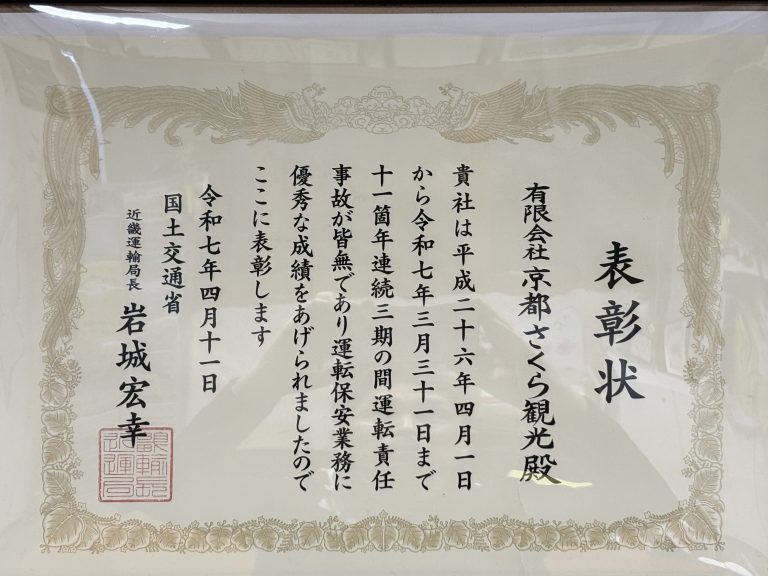 表彰状
有限会社 京都さくら観光殿
貴社は平成二十六年四月一日
から令和七年三月三十一日まで
十一箇年連続三期の間運転責任
事故が皆無であり運転保安業務に
優秀な成績をあげられましたので
ここに表彰します
令和七年四月十一日
国土交通省
近畿運輸局長 岩城宏幸